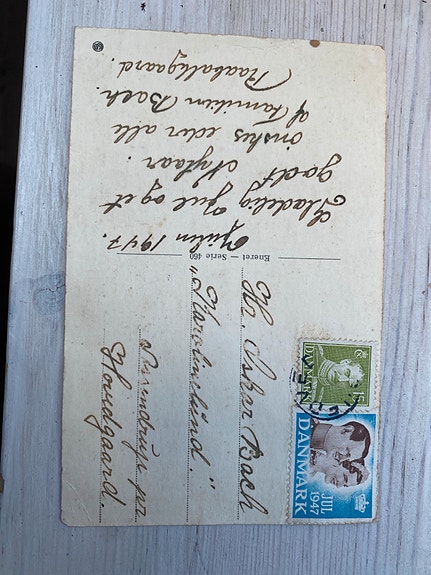 Julen 1947.
Glædelig Jul og et
godt Nytaar.
ønskes eder alle
af familien Bach.
Raaballegaard.
Eneret — Serie 460
Hr. Oskar Bach
"Karolinelund."
Assendrup per
Hovedgaard.
DANMARK
15
JUL
1947
DANMARK